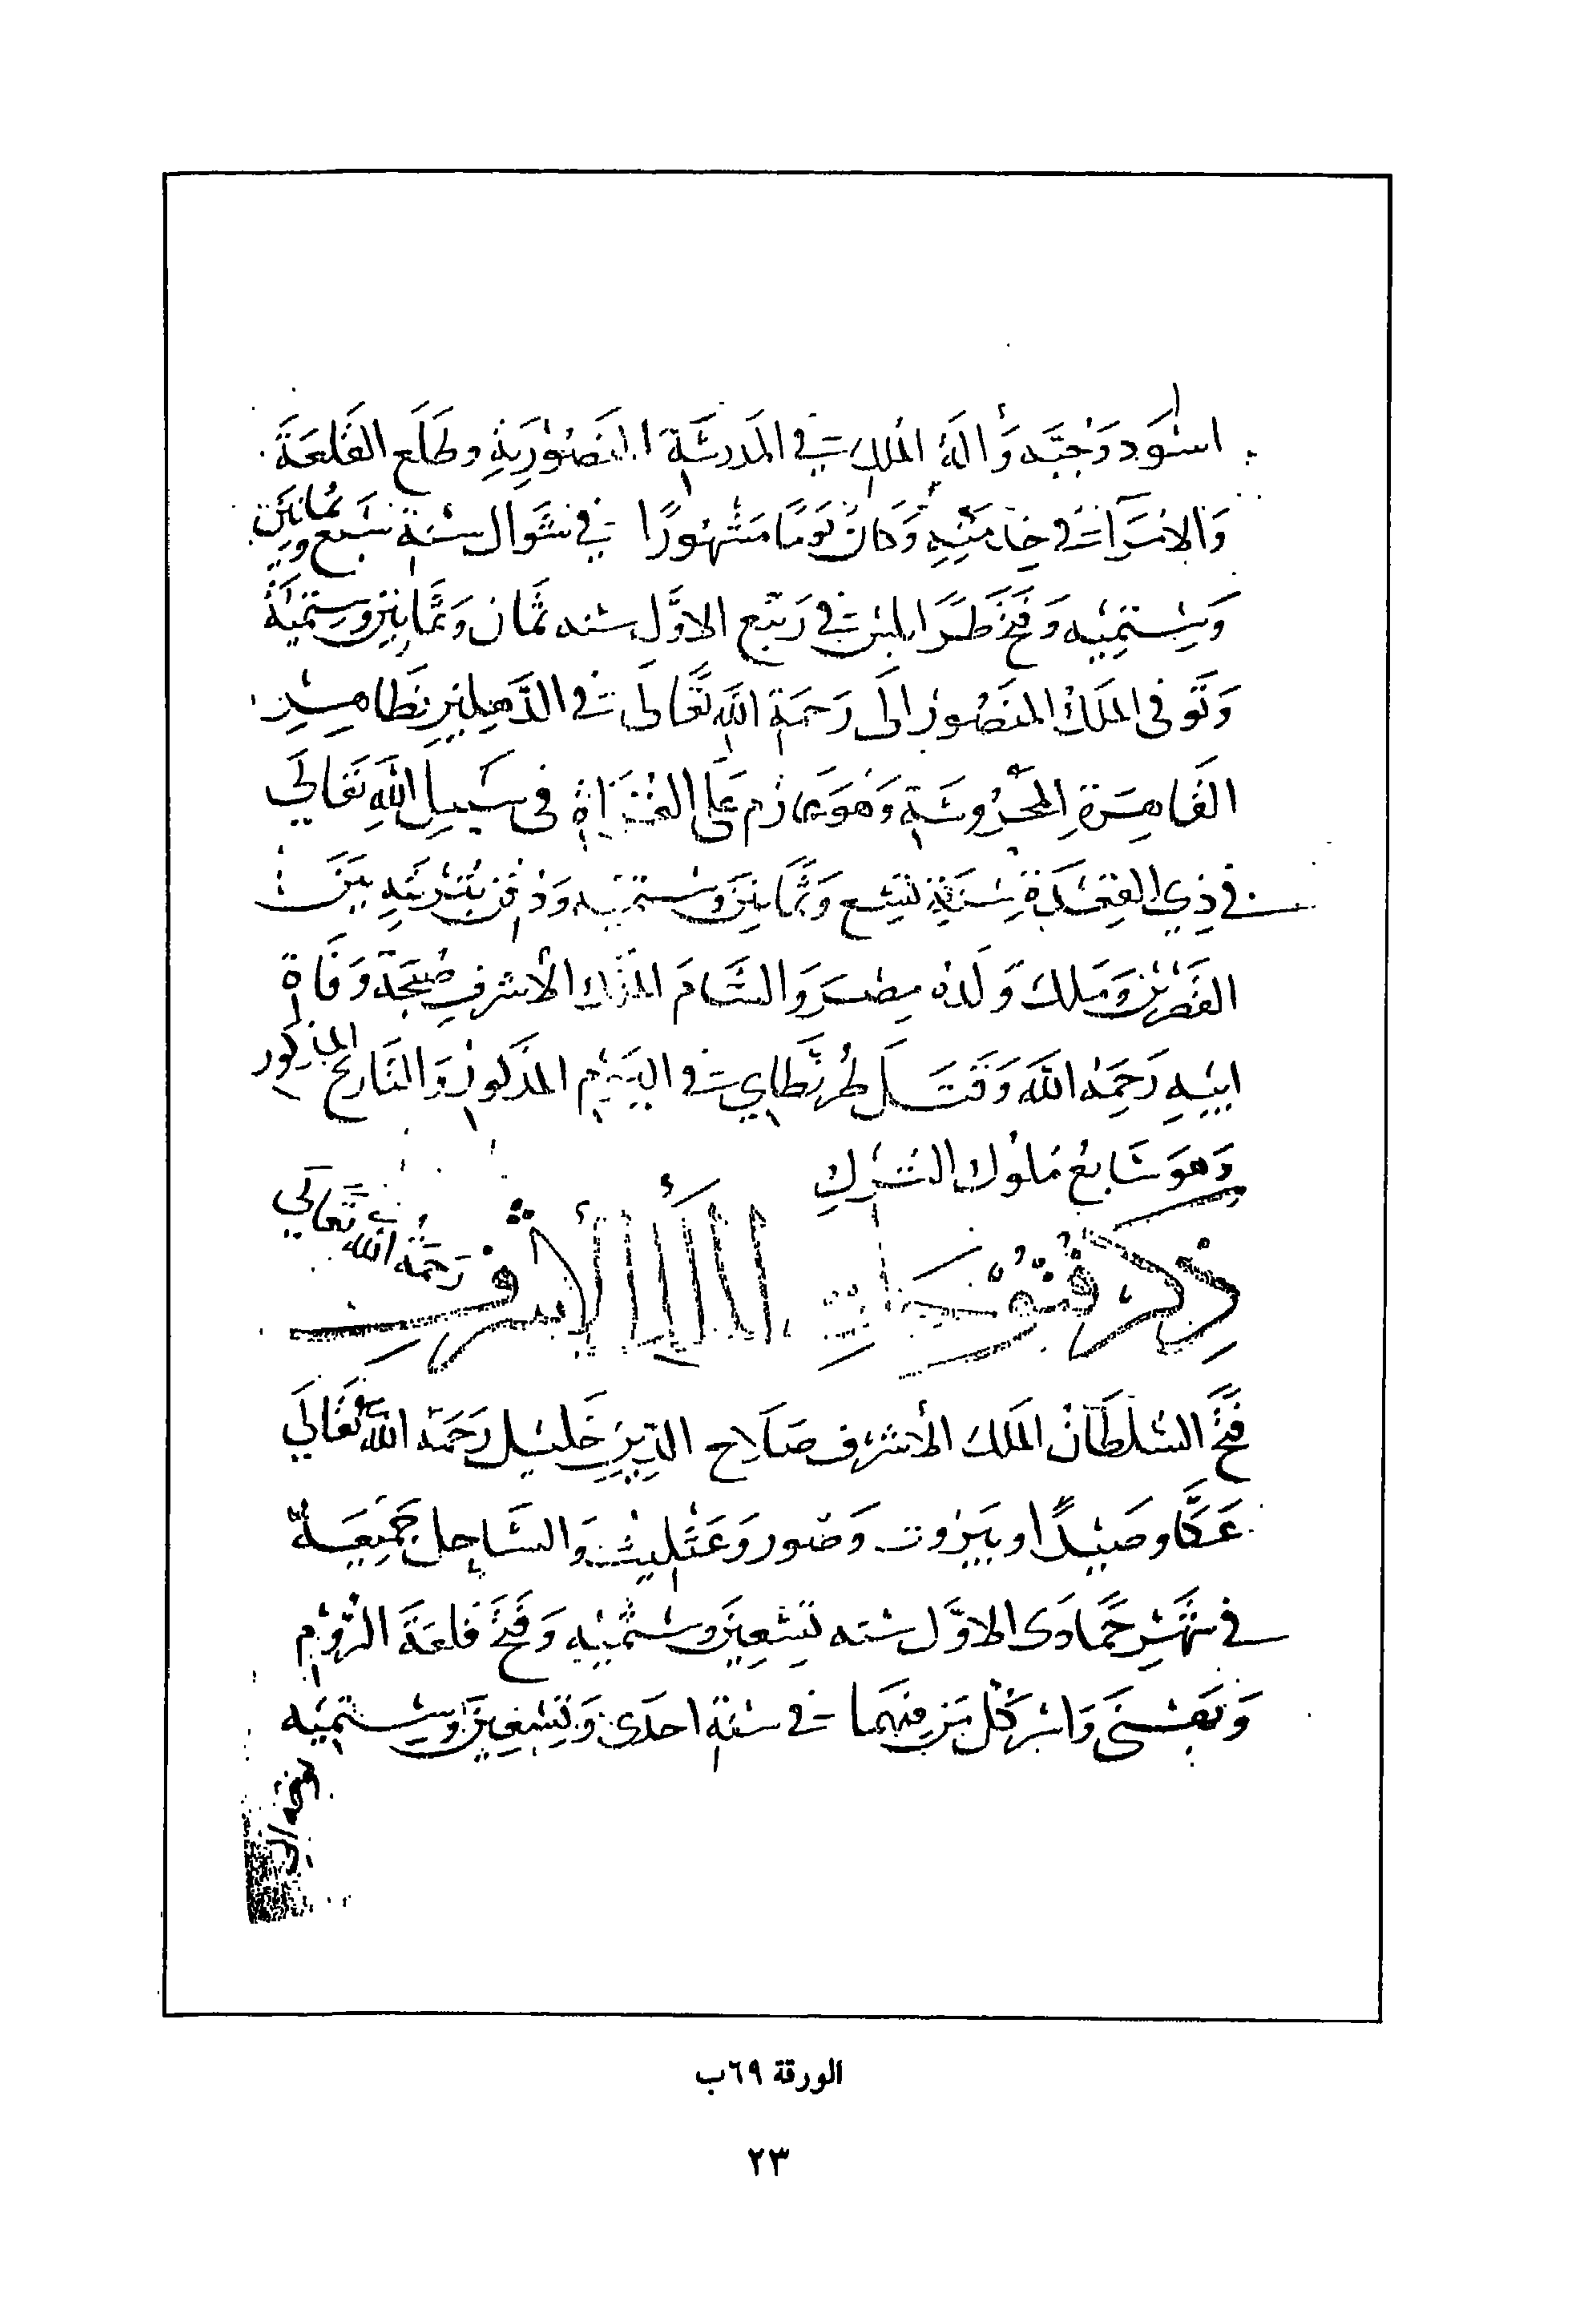 اسْوَد وَجُبَّه وَآلَهُ المُلك في المَدرسَةِ المنَصُورِيَةِ وطَلَع القَلعَةَ
وَالامَرآ في خِدمَتِهِ وَكَانَ يَومًا مَشْهُورًا في شَوال سَنة سَبع وثمانين
وَسِتمِيه وَفتَح طَرَابلس في رَبيع الاوَّل سنه ثَمان وَثَمانين وسِتميَة
وَتَوفى المَلك المنَصُور الَى رَحمَةِ اللَّه تَعَالَى في الدَّهليز بظَاهِر
القَاهِرَةِ المحَرُوسَةِ وَهوَ عَازم عَلى الغُزَاةِ فى سَبيلِ اللهِ تَعَالَي
في ذِي القِعَدَةِ سَنَةِ تِسع وَثَمانِينَ وستميه وَدُفِن بتُربَتهِ بَينَ
القَصرين وَمَلك وَلَدُه مِصر وَالشَامَ الملك الأشرف صُبحَة وَفَاة
ابيهِ رَحِمَهُ اللَّه وَقَتَل طُرنطَاي في اليَوم المذكور وَالتَارِيخ المذكور
وَهوَ سَابعُ مُلوُك التُرك
ذِكر فُتوُحَات الملك الأشرف رَحمَهُ اللَّه تَعالَي
فَتَح السُلطَان المَلك الأشرف صَلَاح الدِين خَليل رَحمَهُ اللَّه تَعَالَي
عَكَّا وصَيْدًا وبَيرُوت وَصُور وَعَثْليث وَالسَاحِل جَمِيعَهُ
في شَهرِ جُمَادَى الاوَّل سَنه تِسْعِينَ وسُتميه وَفَتَح قَلعَةَ الرُّوْم
وَبَهَسْنَى وَاسَر كُل مَن فيهَما في سَنَة احدَى وَتِسْعِينَ وسِتميَه
الورقة ٦٩ب
٢٣